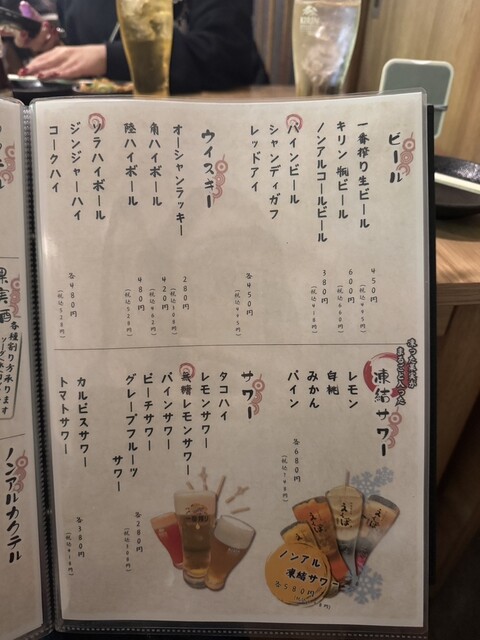 ビール
一番搾り生ビール
450円
(税込495円)
キリン瓶ビール
600円
(税込660円)
ノンアルコールビール
380円
(税込418円)
パインビール
シャンディガフ
レッドアイ
各450円
(税込495円)
ウイスキー
オーシャンラッキー
280円
(税込308円)
角ハイボール
420円
(税込462円)
陸ハイボール
480円
(税込528円)
ソラハイボール
ジンジャーハイ
コークハイ
各480円
(税込528円)
凍った果実が
まるごと入った
凍結サワー
レモン
白桃
みかん
パイン
各680円
(税込748円)
ノンアル
凍結サワー
各580円
サワー
タコハイ
レモンサワー
無糖レモンサワー
パインサワー
ピーチサワー
グレープフルーツ
サワー
各280円
(税込308円)
カルピスサワー
トマトサワー
各380円
(税込418円)
果実酒
各種割り方承ります
ノンアルカクテル
KIRIN